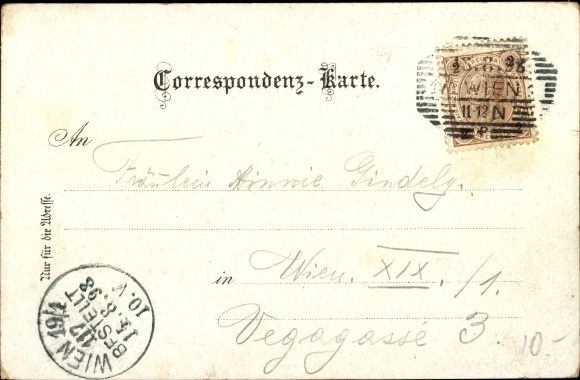 Correspondenz-Karte.
WIEN
An
Fräulein Minnie Gindely.
Nur für die Adresse.
in Wien. XIX. /1.
Vegagasse 3.
10-
WIEN 19/1
117
BESTELLT
15.8.98
10.V